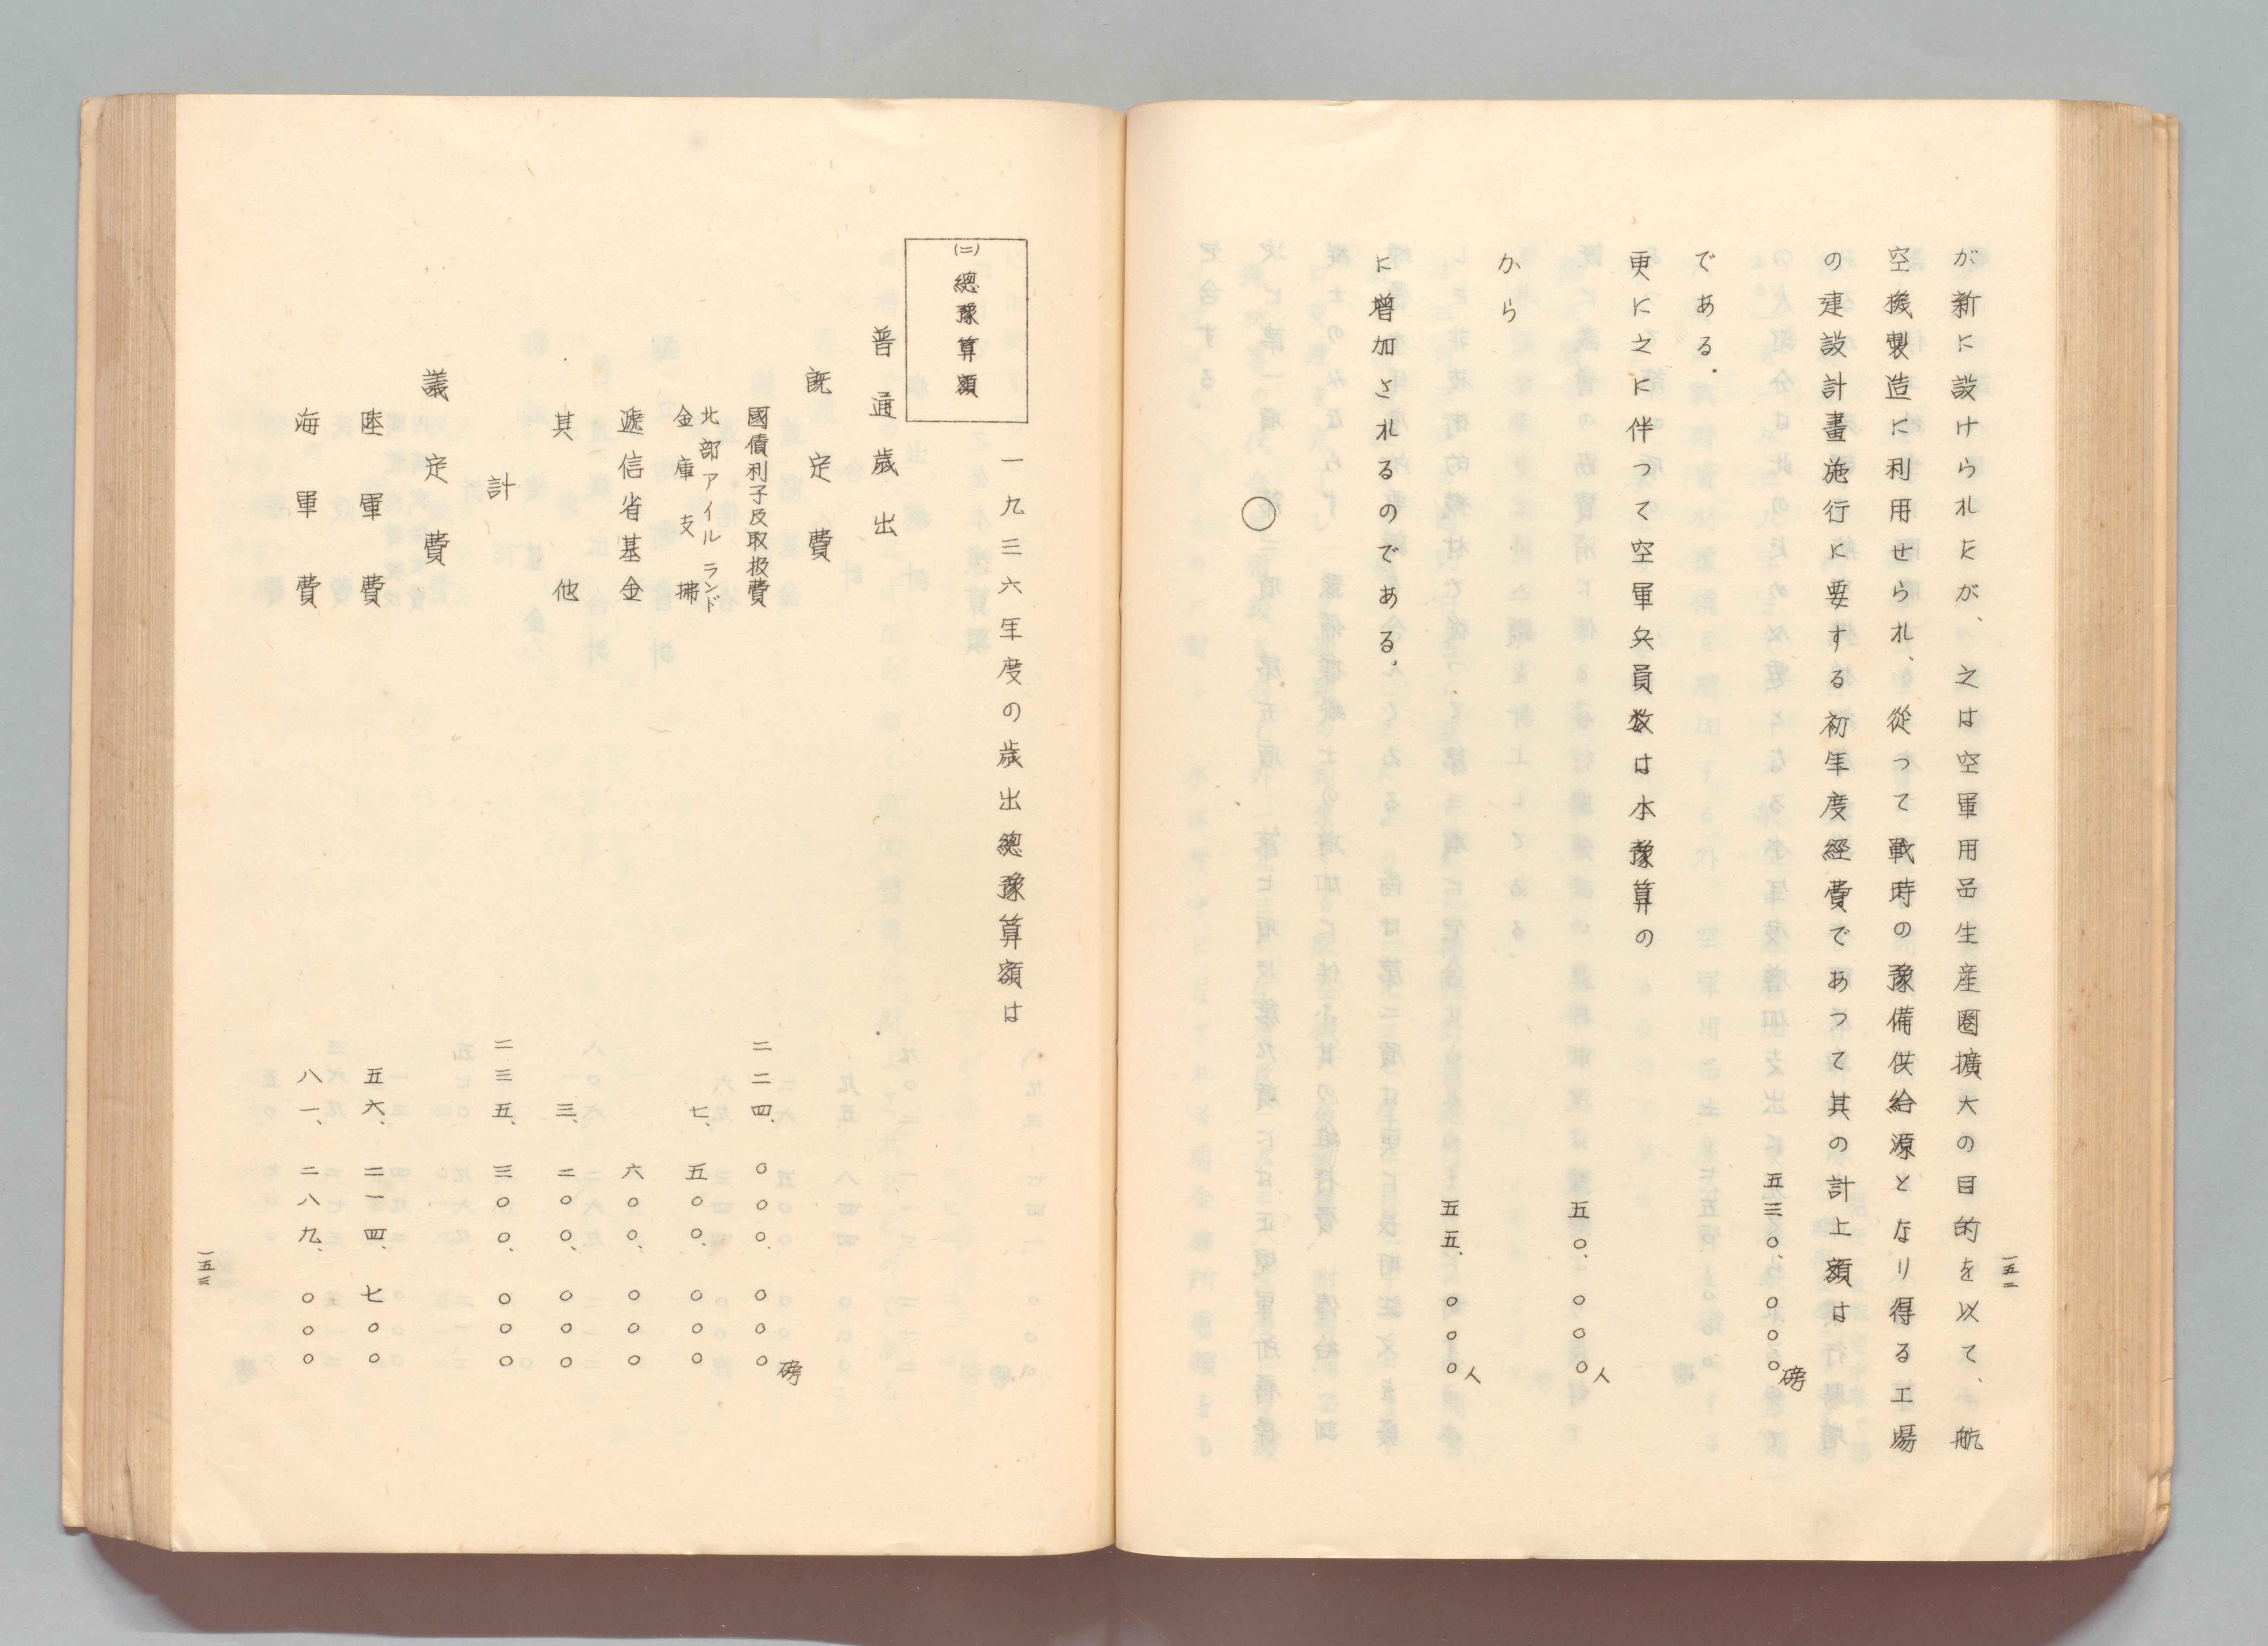 が新に設けられたが、之は空軍用品生産圏擴大の目的を以て、航
空機製造に利用せられ、從つて戰時の豫備供給源となり得る工場
の建設計畫施行に要する初年度経費であつて其の計上額は
五三〇、〇〇〇磅
である。
更に之に伴つて空軍兵員数は本豫算の
五〇、〇〇〇人
から
五五、〇〇〇人
に増加されるのである。
〇
一五二
(二)總豫算額
一九三六年度の歳出總豫算額は
普通歳出
既定費
國債利子及取扱費 二二四、〇〇〇、〇〇〇磅
北部アイルランド
金庫支拂 七、五〇〇、〇〇〇
遞信省基金 六〇〇、〇〇〇
其他 三、二〇〇、〇〇〇
計 二三五、三〇〇、〇〇〇
議定費
陸軍費 五六、二一四、七〇〇
海軍費 八一、二八九、〇〇〇
一五三